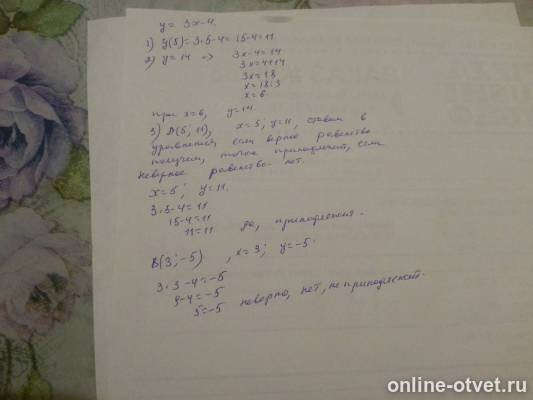 y = 3x-4
1) y(5) = 3·5-4 = 15-4 = 11
2) y = 14 => 3x-4 = 14
3x = 4+14
3x = 18
x = 18:3
x = 6
при x=6, y=14.
3) A(5; 11), x = 5, y = 11, ставим в
уравнения, если верное равенство
получаем, точка принадлежит, если
неверное равенство - нет.
x = 5; y = 11.
3·5-4 = 11
15-4 = 11
11 = 11 да, принадлежит.
B(3; -5), x = 3; y = -5.
3·3-4 = -5
9-4 = -5
5 = -5 неверно, нет, не принадлежит.
online-otvet.ru